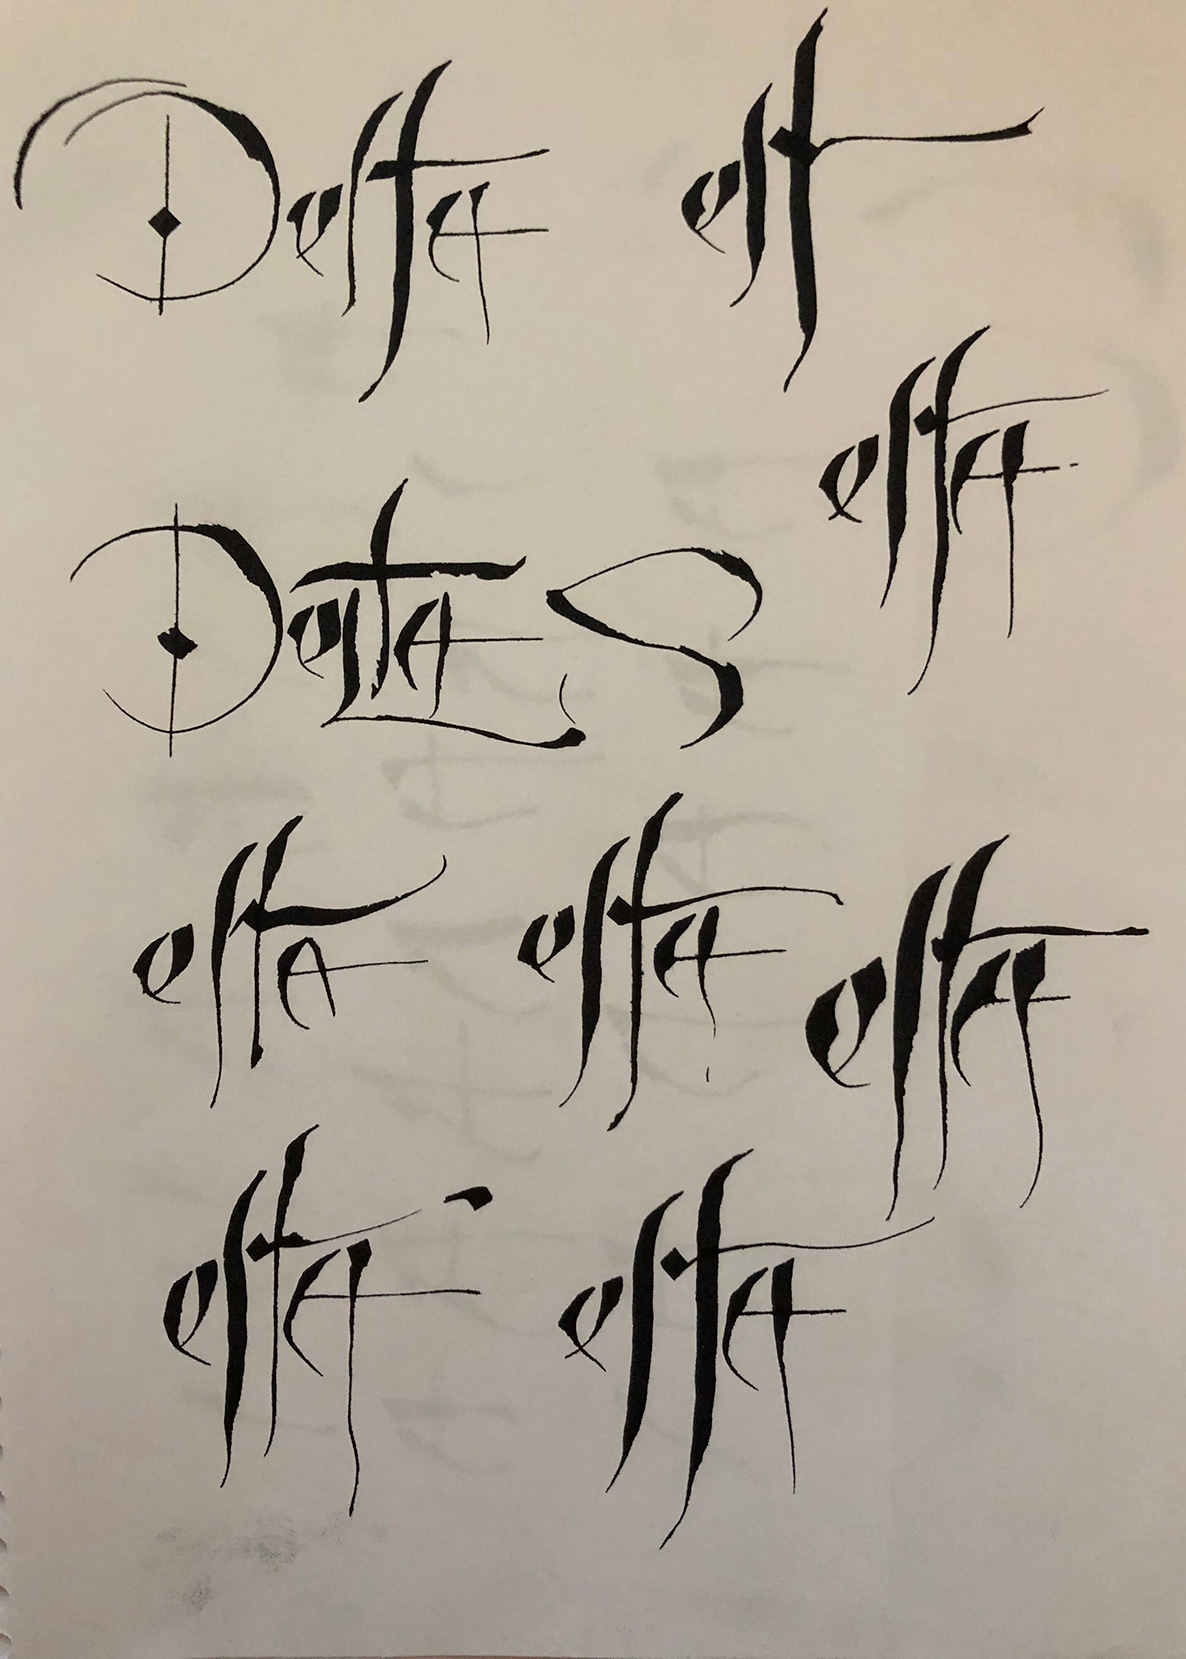 Delta elt
elta
Delta S
elta elta elta
elta elta